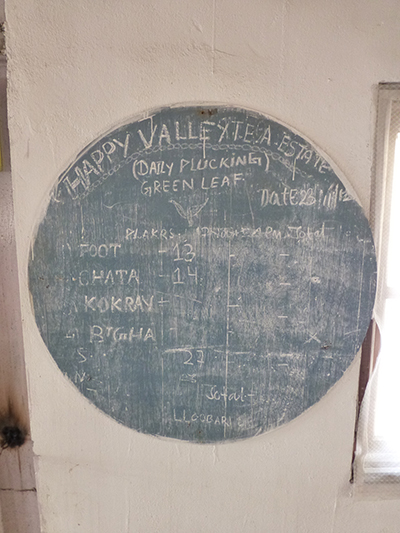 HAPPY VALLEY TEA ESTATE
(DAILY PLUCKING)
GREEN LEAF
Date 23/11/12
PLAKRS. 4PM Total
FOOT - 13 - -
CHATA - 14 -
KOKRAY - -
BIGHA - - x
S. 27 - -
N.
Total -
LLOOBARI